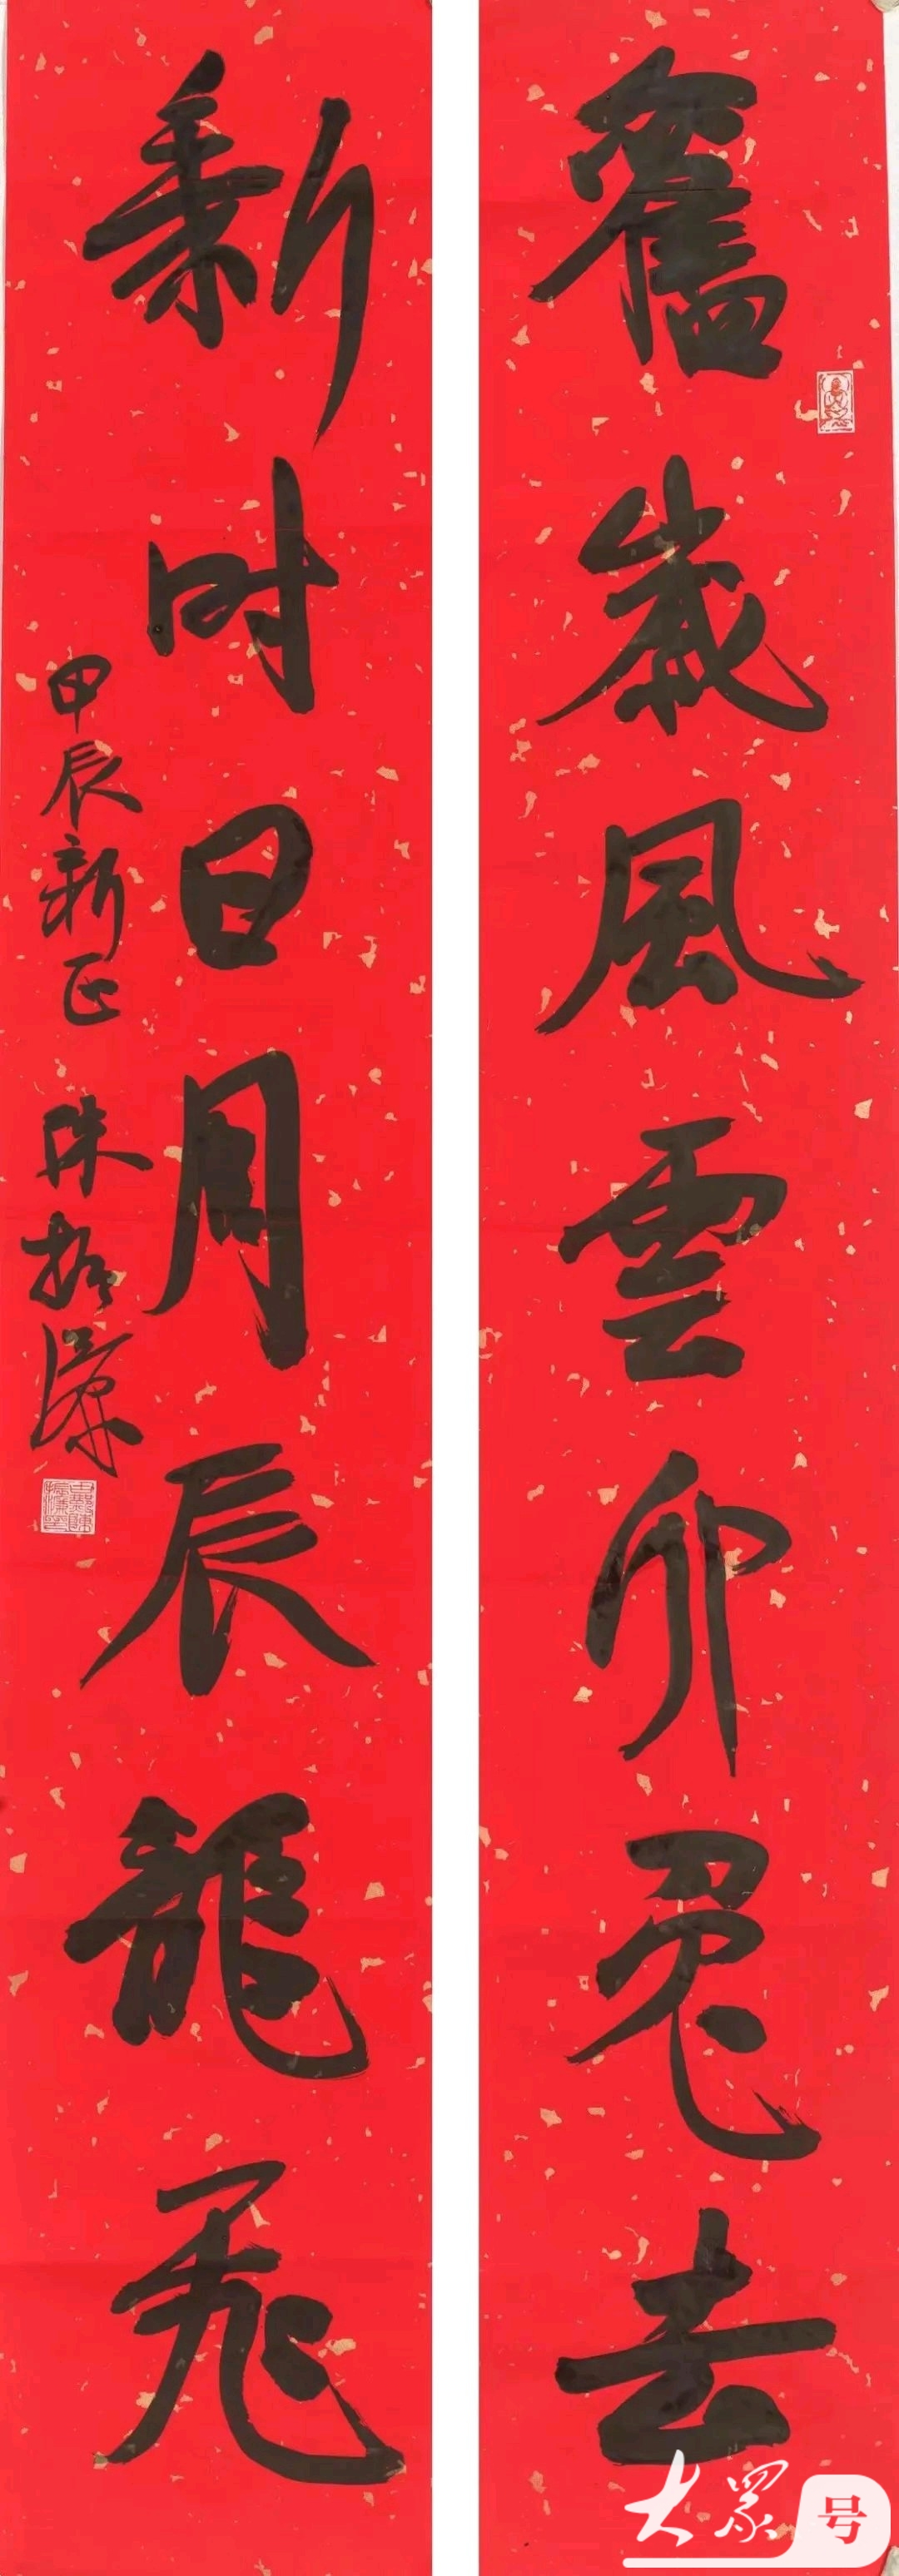 舊歲風雲卯兔去
新时日月辰龍飛
甲辰新正
陳振濂
大眾号